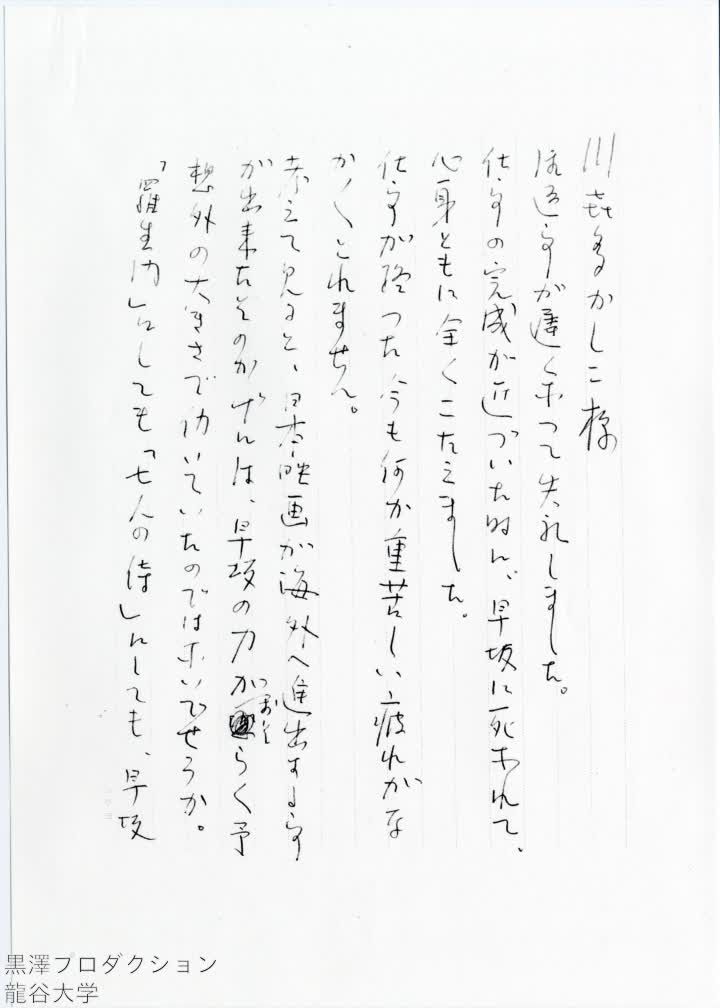 川喜多かしこ様
御返事が遅くなって失礼しました。
仕事の完成が近づいた時に、早坂に死なれて、
心身ともに全くこたえました。
仕事が終った今も何か重苦しい疲れがな
かくとれません。
考えて見ると、日本映画が海外へ進出する事
が出来たそのかげんは、早坂の力がおそらく予
想外の大きさで働いていたのではないでせうか。
「羅生門」にしても「七人の侍」にしても、早坂
黒澤プロダクション
龍谷大学